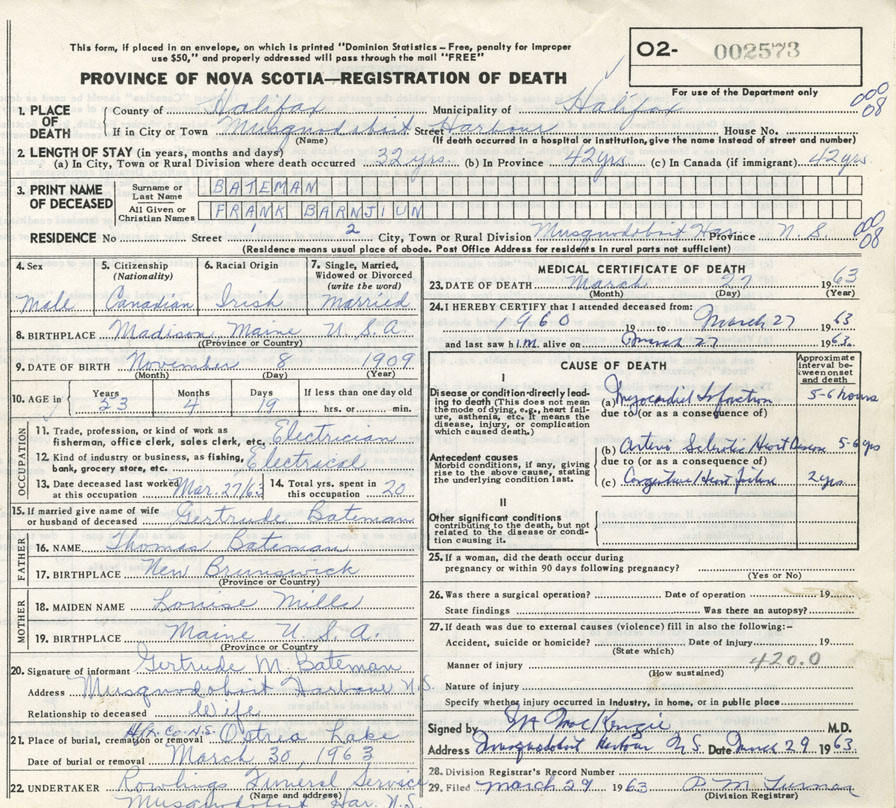 This form, if placed in an envelope, on which is printed "Dominion Statistics – Free, penalty for improper
use $50," and properly addressed will pass through the mail "FREE"
PROVINCE OF NOVA SCOTIA—REGISTRATION OF DEATH
O2- 002573
For use of the Department only
000
08
1. PLACE OF DEATH County of Halifax Municipality of Halifax
If in City or Town Musquodoboit Street Harbour House No.
(Name) (If death occurred in a hospital or institution, give the name instead of street and number)
2. LENGTH OF STAY (in years, months and days)
(a) In City, Town or Rural Division where death occurred 32 yrs. (b) In Province 42 yrs. (c) In Canada (if immigrant) 42 yrs
3. PRINT NAME OF DECEASED
Surname or Last Name BATEMAN
All Given or Christian Names FRANK BARNJIUN
1 2
RESIDENCE No Street City, Town or Rural Division Musquodoboit Har. Province N. S
000
08
(Residence means usual place of abode. Post Office Address for residents in rural parts not sufficient)
4. Sex Male
5. Citizenship (Nationality) Canadian
6. Racial Origin Irish
7. Single, Married, Widowed or Divorced (write the word) Married
8. BIRTHPLACE Madison Maine U. S. A
(Province or Country)
9. DATE OF BIRTH November 8 1909
(Month) (Day) (Year)
10. AGE in Years 53 Months 4 Days 19 If less than one day old
hrs. or min.
OCCUPATION
11. Trade, profession, or kind of work as
fisherman, office clerk, sales clerk, etc. Electrician
12. Kind of industry or business, as fishing,
bank, grocery store, etc. Electrical
13. Date deceased last worked at this occupation Mar. 27/63
14. Total yrs. spent in this occupation 20
15. If married give name of wife
or husband of deceased Gertrude Bateman
FATHER
16. NAME Thomas Bateman
17. BIRTHPLACE New Brunswick
(Province or Country)
MOTHER
18. MAIDEN NAME Louise Mills
19. BIRTHPLACE Maine U. S. A.
(Province or Country
20. Signature of informant Gertrude M Bateman
Address Musquodoboit Harbour N.S.
Relationship to deceased Wife
21. Place of burial, cremation or removal Hfx. Co. N.S. Ostrea Lake
Date of burial or removal March 30, 1963
22. UNDERTAKER Rowlings Funeral Service
(Name and address)
Musquodoboit Har. N.S.
MEDICAL CERTIFICATE OF DEATH
23. DATE OF DEATH March 27 1963
(Month) (Day) (Year)
24. I HEREBY CERTIFY that I attended deceased from:
1960 19 to March 27 1963
and last saw him alive on March 27 1963.
CAUSE OF DEATH
Approximate interval between onset and death
I
Disease or condition directly leading to death (This does not mean the mode of dying, e.g., heart failure, asthenia, etc. It means the disease, injury, or complication which caused death.)
(a) Myocardial Infarction 5-6 hours
due to (or as a consequence of)
Antecedent causes
Morbid conditions, if any, giving rise to the above cause, stating the underlying condition last.
(b) Arterio Sclerotic Heart Disease 5-6 yrs
due to (or as a consequence of)
(c) Congestive Heart failure 2 yrs.
II
Other significant conditions
contributing to the death, but not related to the disease or condition causing it.
25. If a woman, did the death occur during
pregnancy or within 90 days following pregnancy?
(Yes or No)
26. Was there a surgical operation? Date of operation 19
State findings Was there an autopsy?
27. If death was due to external causes (violence) fill in also the following:–
Accident, suicide or homicide? Date of injury 19
(State which)
Manner of injury 420.0
(How sustained)
Nature of injury
Specify whether injury occurred in industry, in home, or in public place
Signed by MacKenzie M.D.
Address Musquodoboit Harbour N.S. Date March 29 1963
28. Division Registrar's Record Number
29. Filed March 29 1963
(Division Registrar)